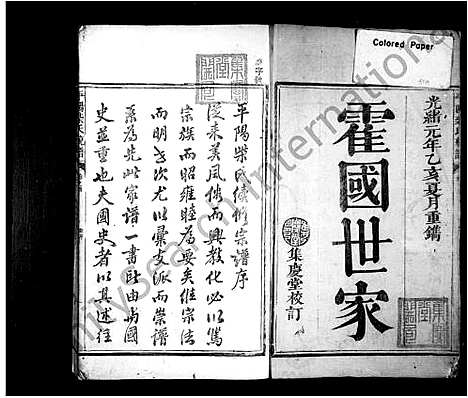 Colored Paper
光緒元年乙亥夏月重鐫
霍國世家
集慶堂校訂
平陽柴氏續修宗譜序
從来美風俗而興教化必以篤
宗族而昭雍睦為要矣維宗法
而明世次尤以彙支派而崇譜
系為先此家譜一書所由与國
史並重也夫國史者以其述往